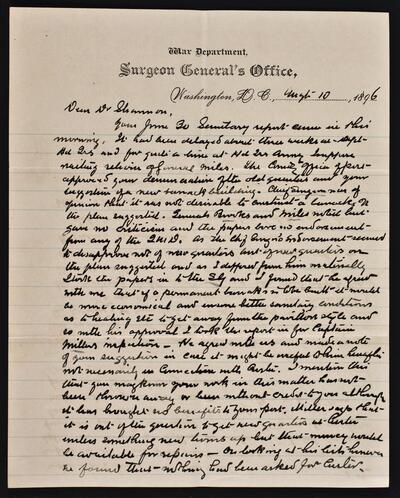 War Department,
Surgeon General's Office,
Washington, D. C., Augst 10, 1896
Dear Dr Shannon,
Your June 30 Sanitary report came in this
morning. It had been delayed about three weeks at Dept
Hd Qrs and for quite a time at Hd Qrs Army
return of General Miles. The
approved your of the old quarters and your
suggestion of a new barrack building. was of
opinion that it was not desirable to construct a barracks on
the plan suggested. Generals and Miles noted but
gave no criticism and the papers bore no endorsement
from any of the endorsement seemed
to disapprove not of new quarters but of new quarters on
the plan suggested and as I differed from him materially
I took the papers in to the and found that he agreed
with me that if a permanent barracks is to be built it would
be more economical and insure better sanitary conditions
as to heating etc to get away from the pavilion style and
so with his approval I took the report in for Captain
Millers inspection. He agreed with us and made a note
of your suggestion in case it might be useful to him
not necessarily in connection with Custer. I mention this
that you may know your work in this matter has not
been thrown away or been without credit to you although
it has brought no benefits to your post. Miller says that
it is out of the question to get new quarters at Custer
unless something new turns up but that money would
be available for repairs — On looking at his
he found that nothing had been asked for Custer.